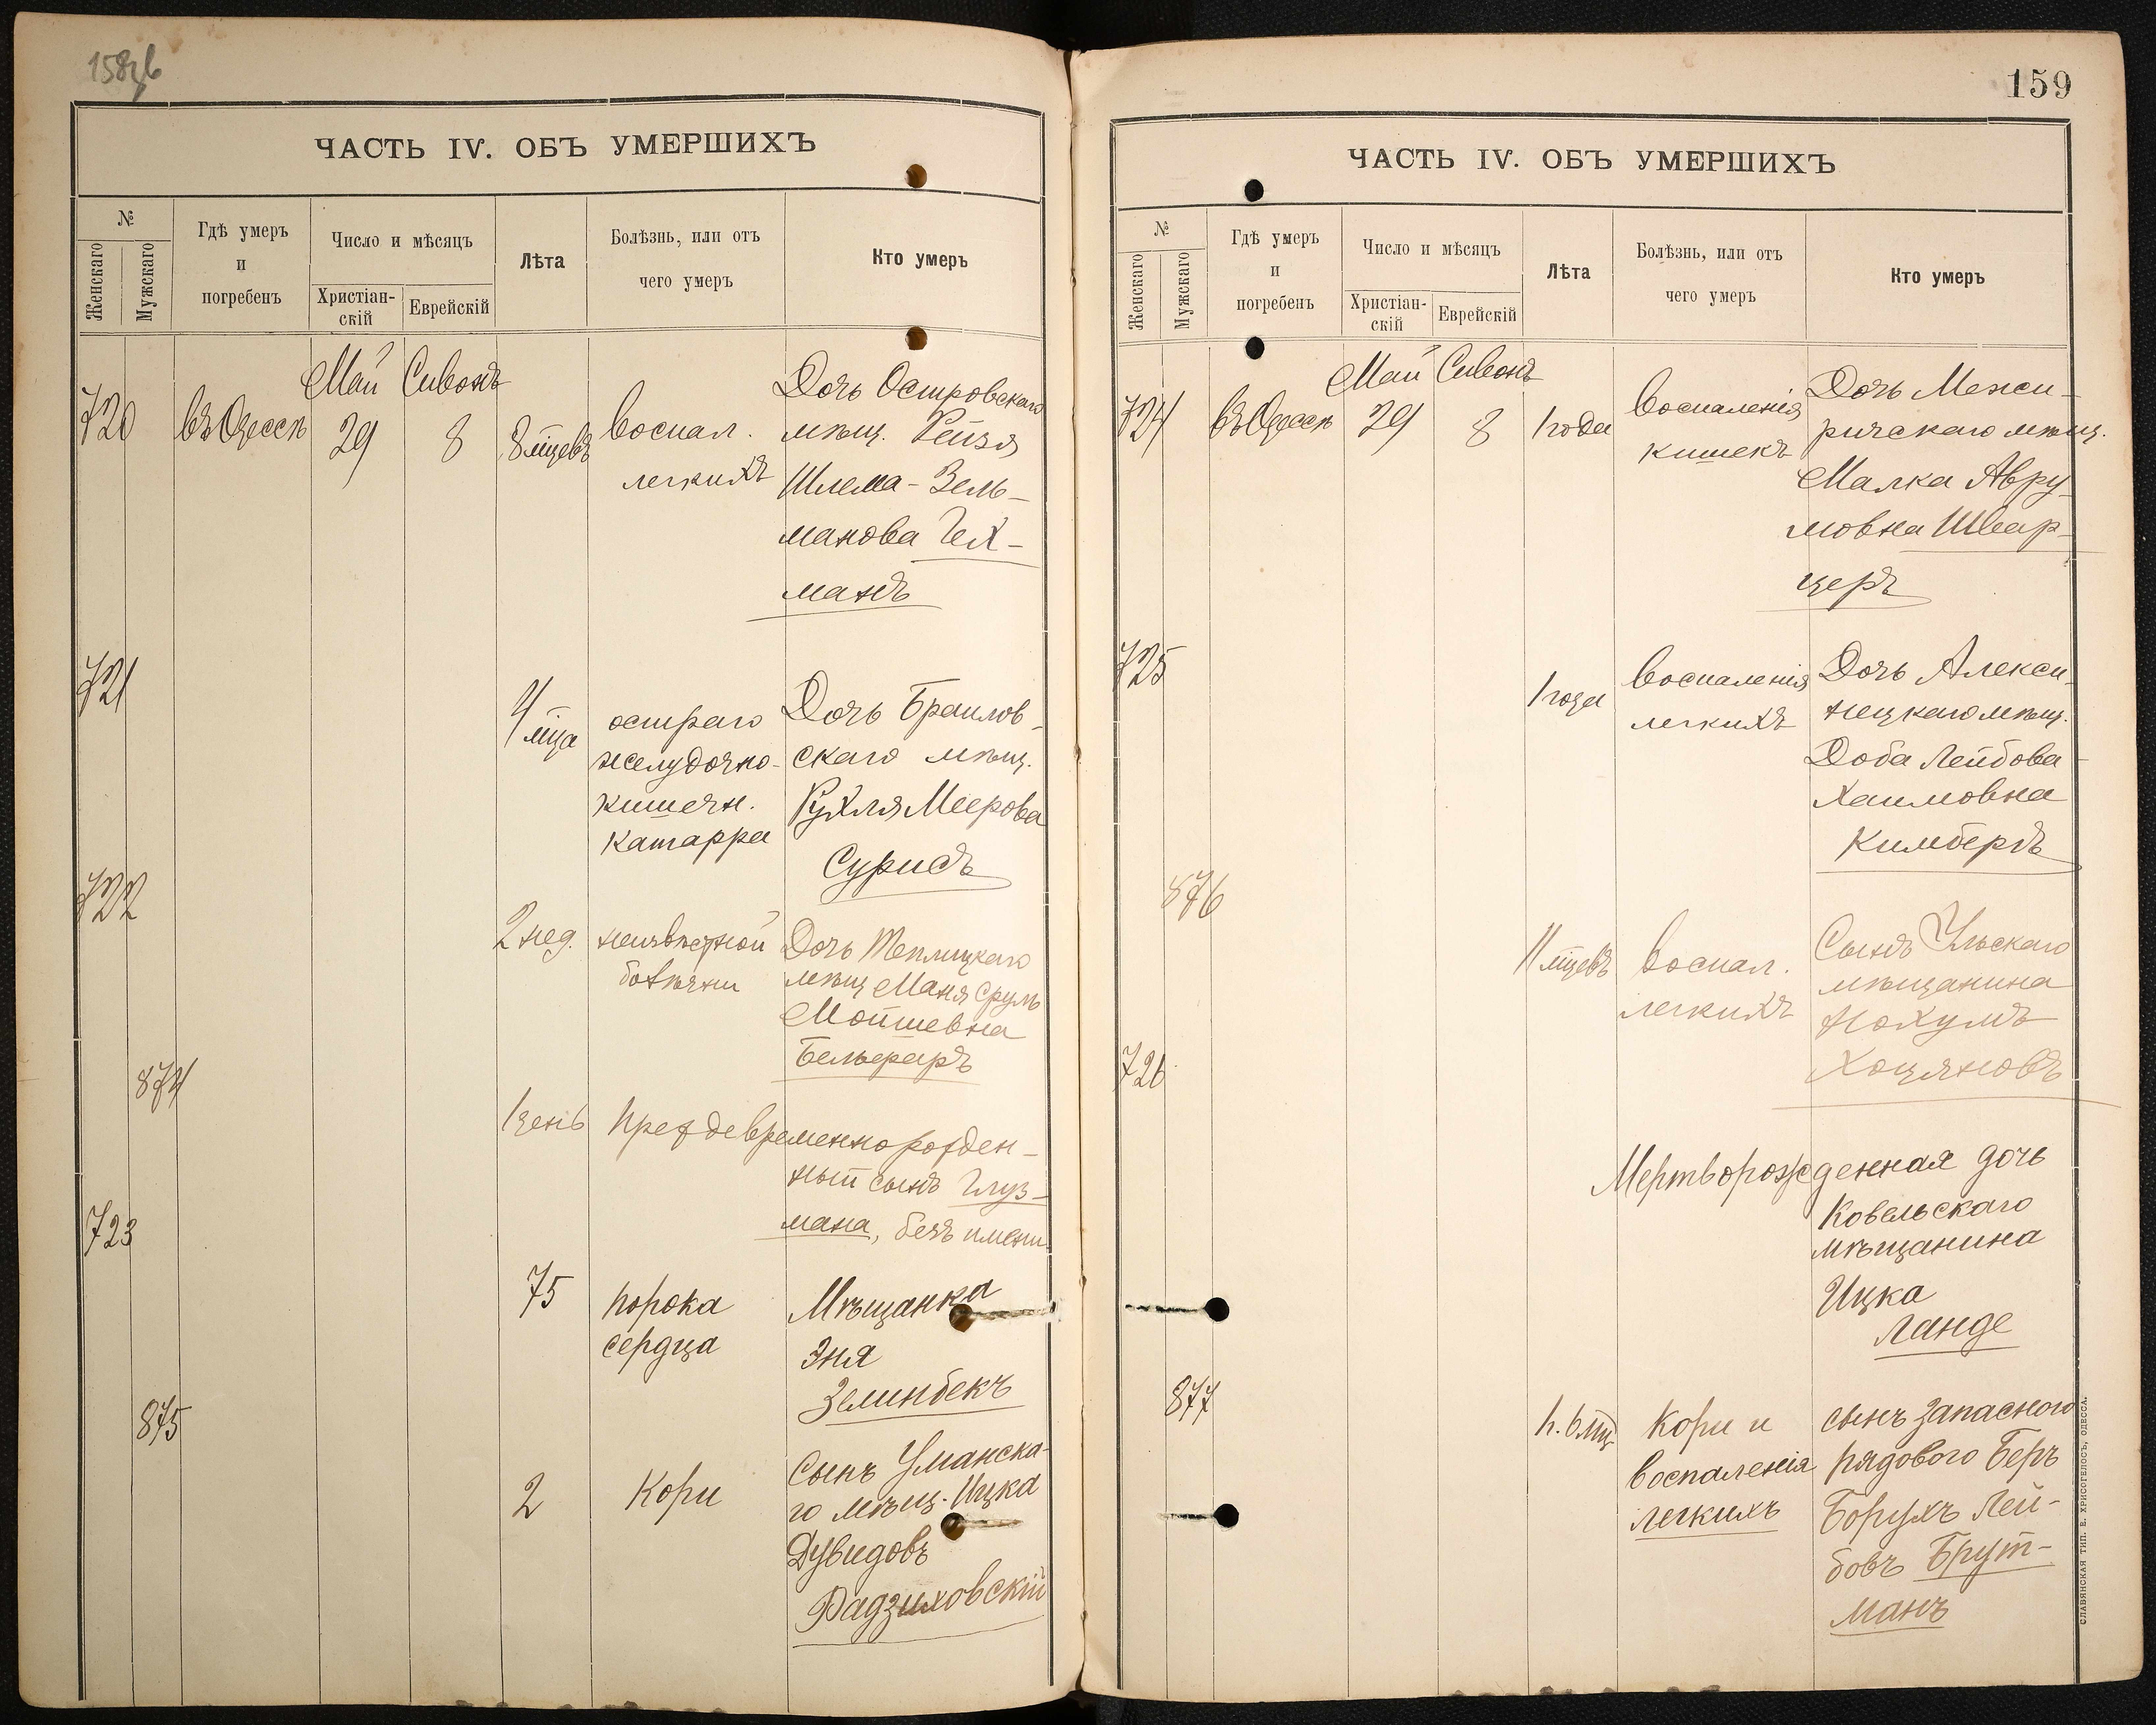 158 об
ЧАСТЬ IV. ОБЪ УМЕРШИХЪ
№
Женскаго
Мужскаго
Гдѣ умеръ
и
погребенъ
Число и мѣсяцъ
Христіан-
скій
Еврейскій
Лѣта
Болѣзнь, или отъ
чего умеръ
Кто умеръ
Май Сивонъ
720 въ Одессѣ 29 8 8 мцевъ
воспал.
легкихъ
Дочь Островскаго
мѣщ. Рейзя
Шлема-Зель-
манова Гех-
манъ
721
4 мца
остраго
желудочно-
кишечн.
катарра
Дочь Браилов-
скаго мѣщ.
Рухля Меерова
Сурисъ
722
2 нед.
неизвѣстной
болѣзни
Дочь Теплицкаго
мѣщ Маня Сруль
Мошшевна
Бельферъ
874
1 день Преждевременно рожден-
ный сынъ Глуз-
мана, безъ имени
723
75
порока
сердца
Мѣщанка
Эня
Зелинбекъ
875
2 Кори
Сынъ Уманска-
го мѣщ. Ицка
Дувидовъ
Радзиховскій
159
ЧАСТЬ IV. ОБЪ УМЕРШИХЪ
№
Женскаго
Мужскаго
Гдѣ умеръ
и
погребенъ
Число и мѣсяцъ
Христіан-
скій
Еврейскій
Лѣта
Болѣзнь, или отъ
чего умеръ
Кто умеръ
Май Сивонъ
724 въ Одессѣ 29 8 1 года
воспаленія
кишекъ
Дочь Межи-
ричскаго мѣщ.
Малка Авру-
мовна Швар-
церъ
725
1 года
воспаленія
легкихъ
Дочь Алекси-
нецкаго мѣщ.
Доба Лейбова-
Хаимовна
Кимберъ
876
11 мцевъ
воспал.
легкихъ
Сынъ Ульскаго
мѣщанина
Нохумъ
Хоцяновъ
726
Мертворожденная дочь
Ковельскаго
мѣщанина
Ицка
Ланде
877
п. 6 мц
Кори и
воспаленія
легкихъ
сынъ запасного
рядового Беръ
Борухъ Лей-
бовъ Брут-
манъ
СЛАВЯНСКАЯ ТИП. Е. ХРИСОГЕЛОСЪ, ОДЕССА.